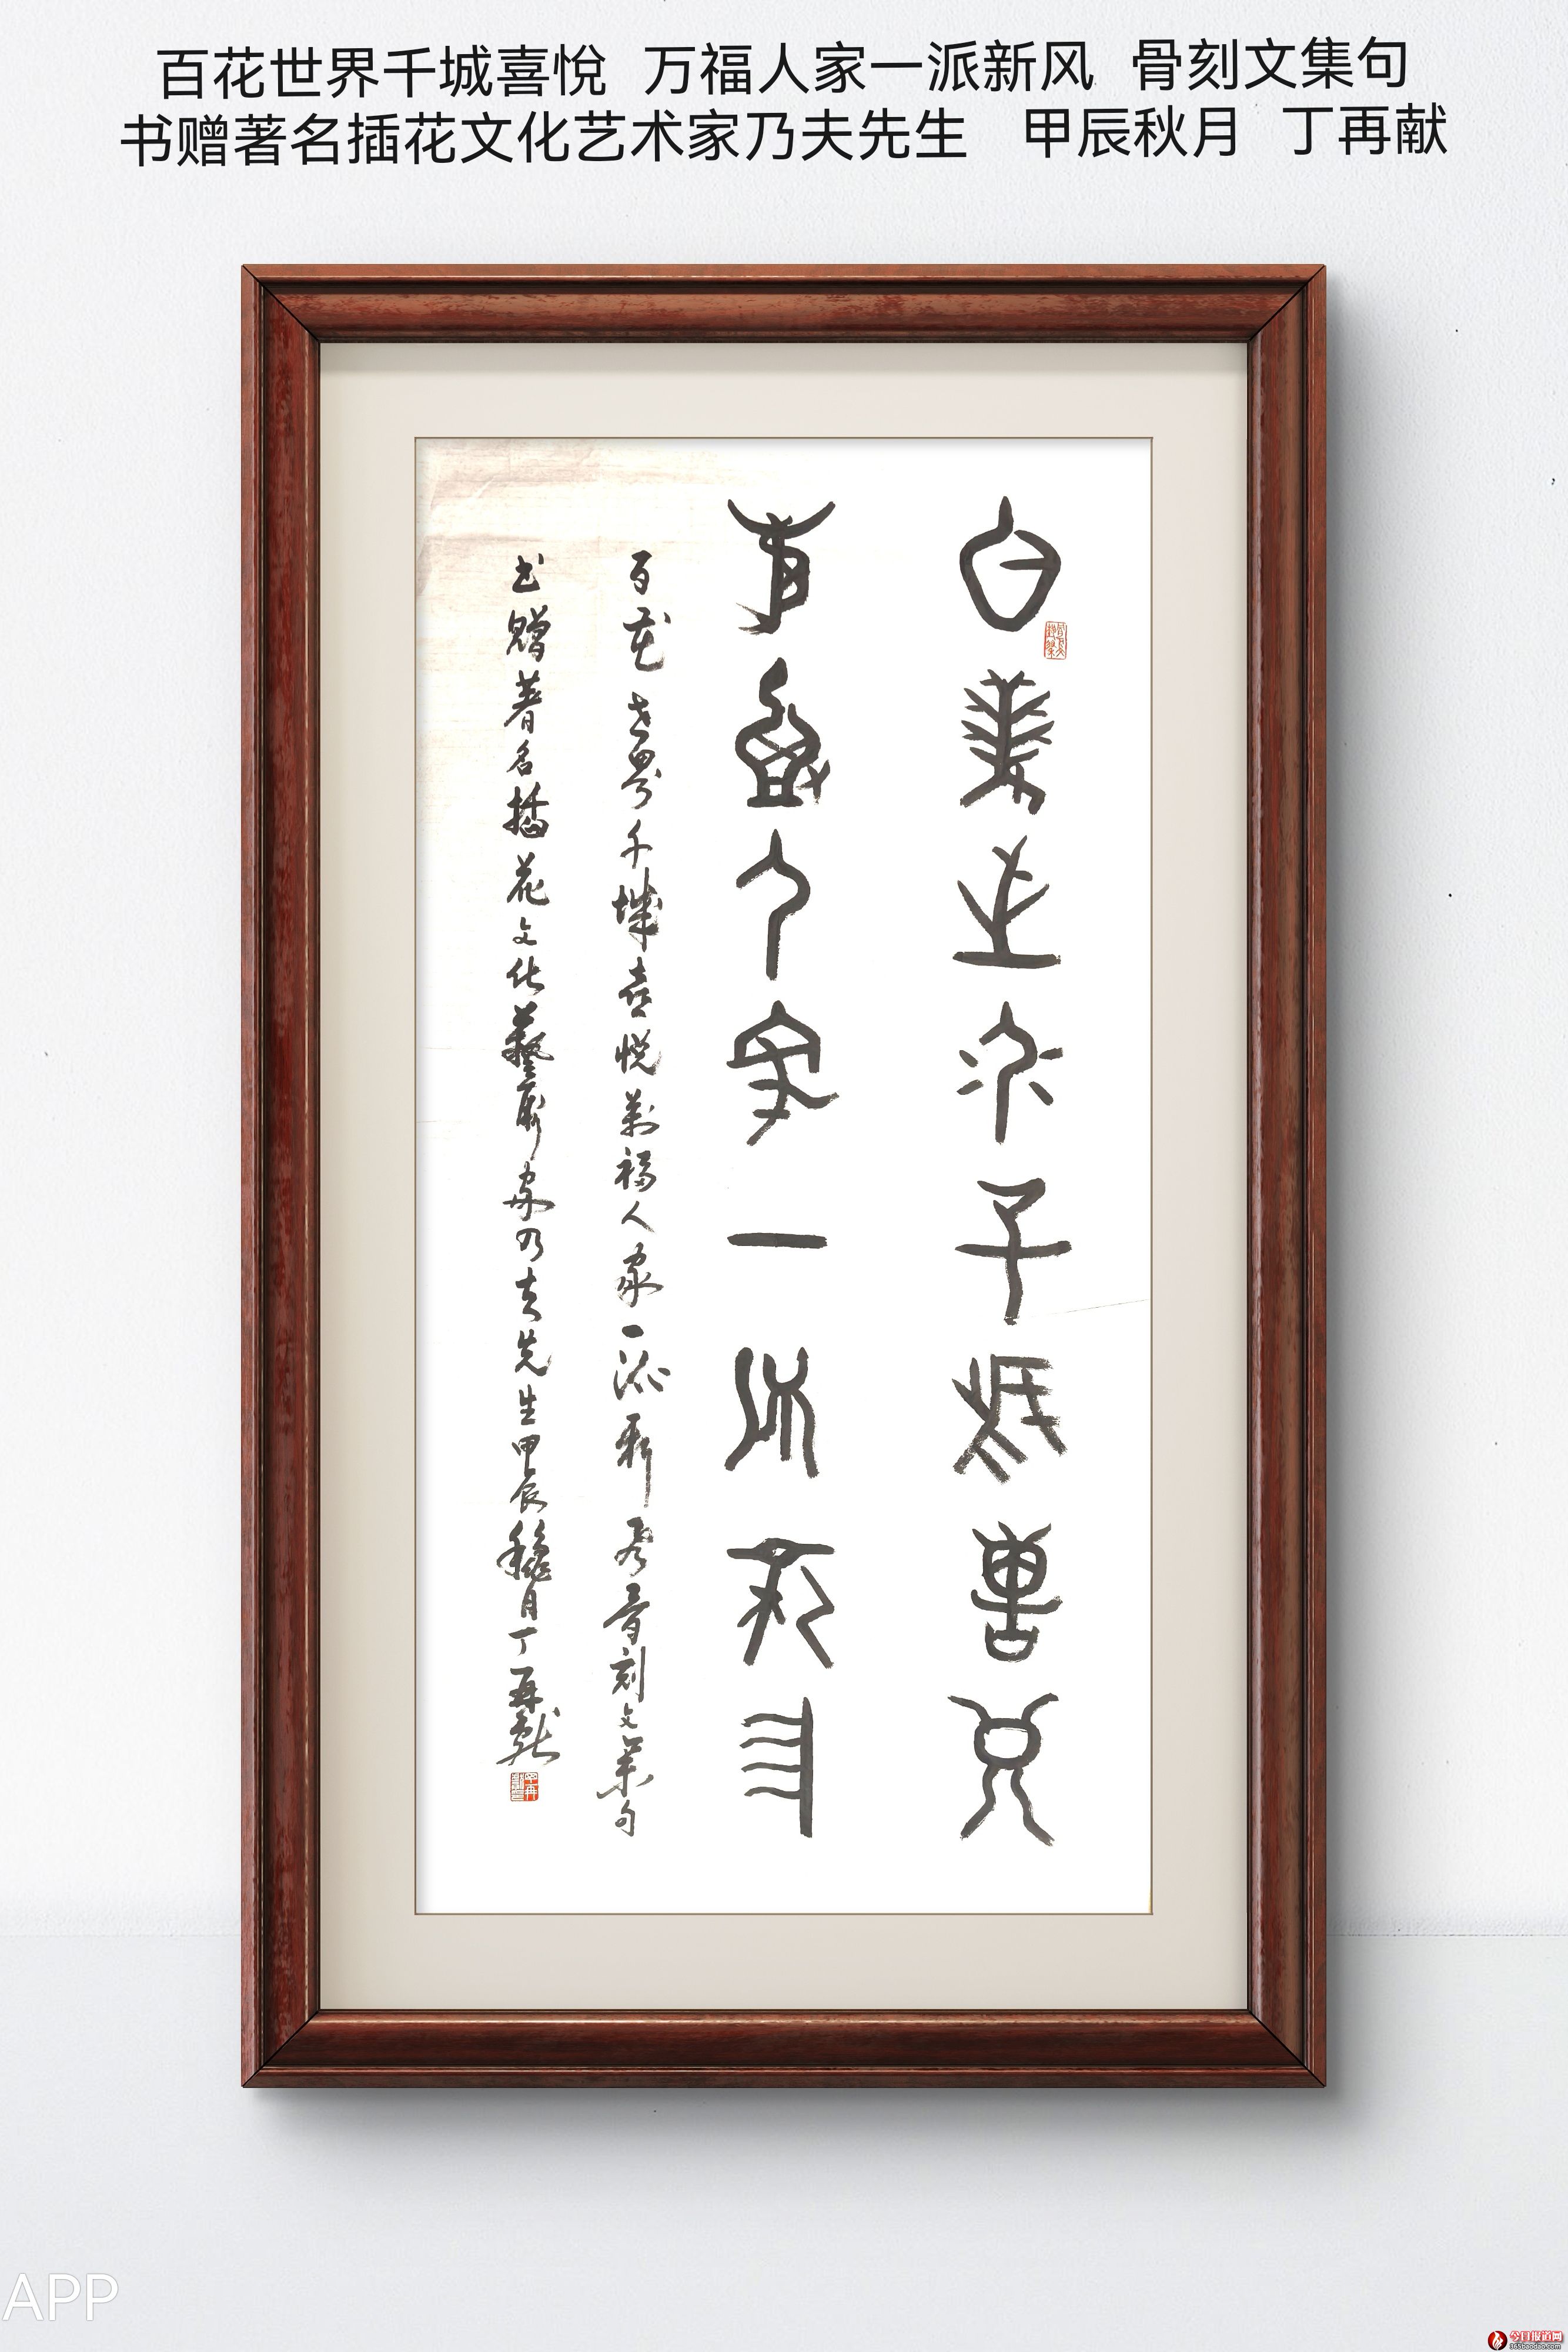 百花世界千城喜悦 万福人家一派新风 骨刻文集句
书赠著名插花文化艺术家乃夫先生 甲辰秋月 丁再献
百花世界千城喜悦
万福人家一派新风
百花世界千城喜悦万福人家一派新风骨刻文集句
书赠著名插花文化藝術家乃夫先生甲辰秋月丁再献
APP
今日报道网
365baodao.com